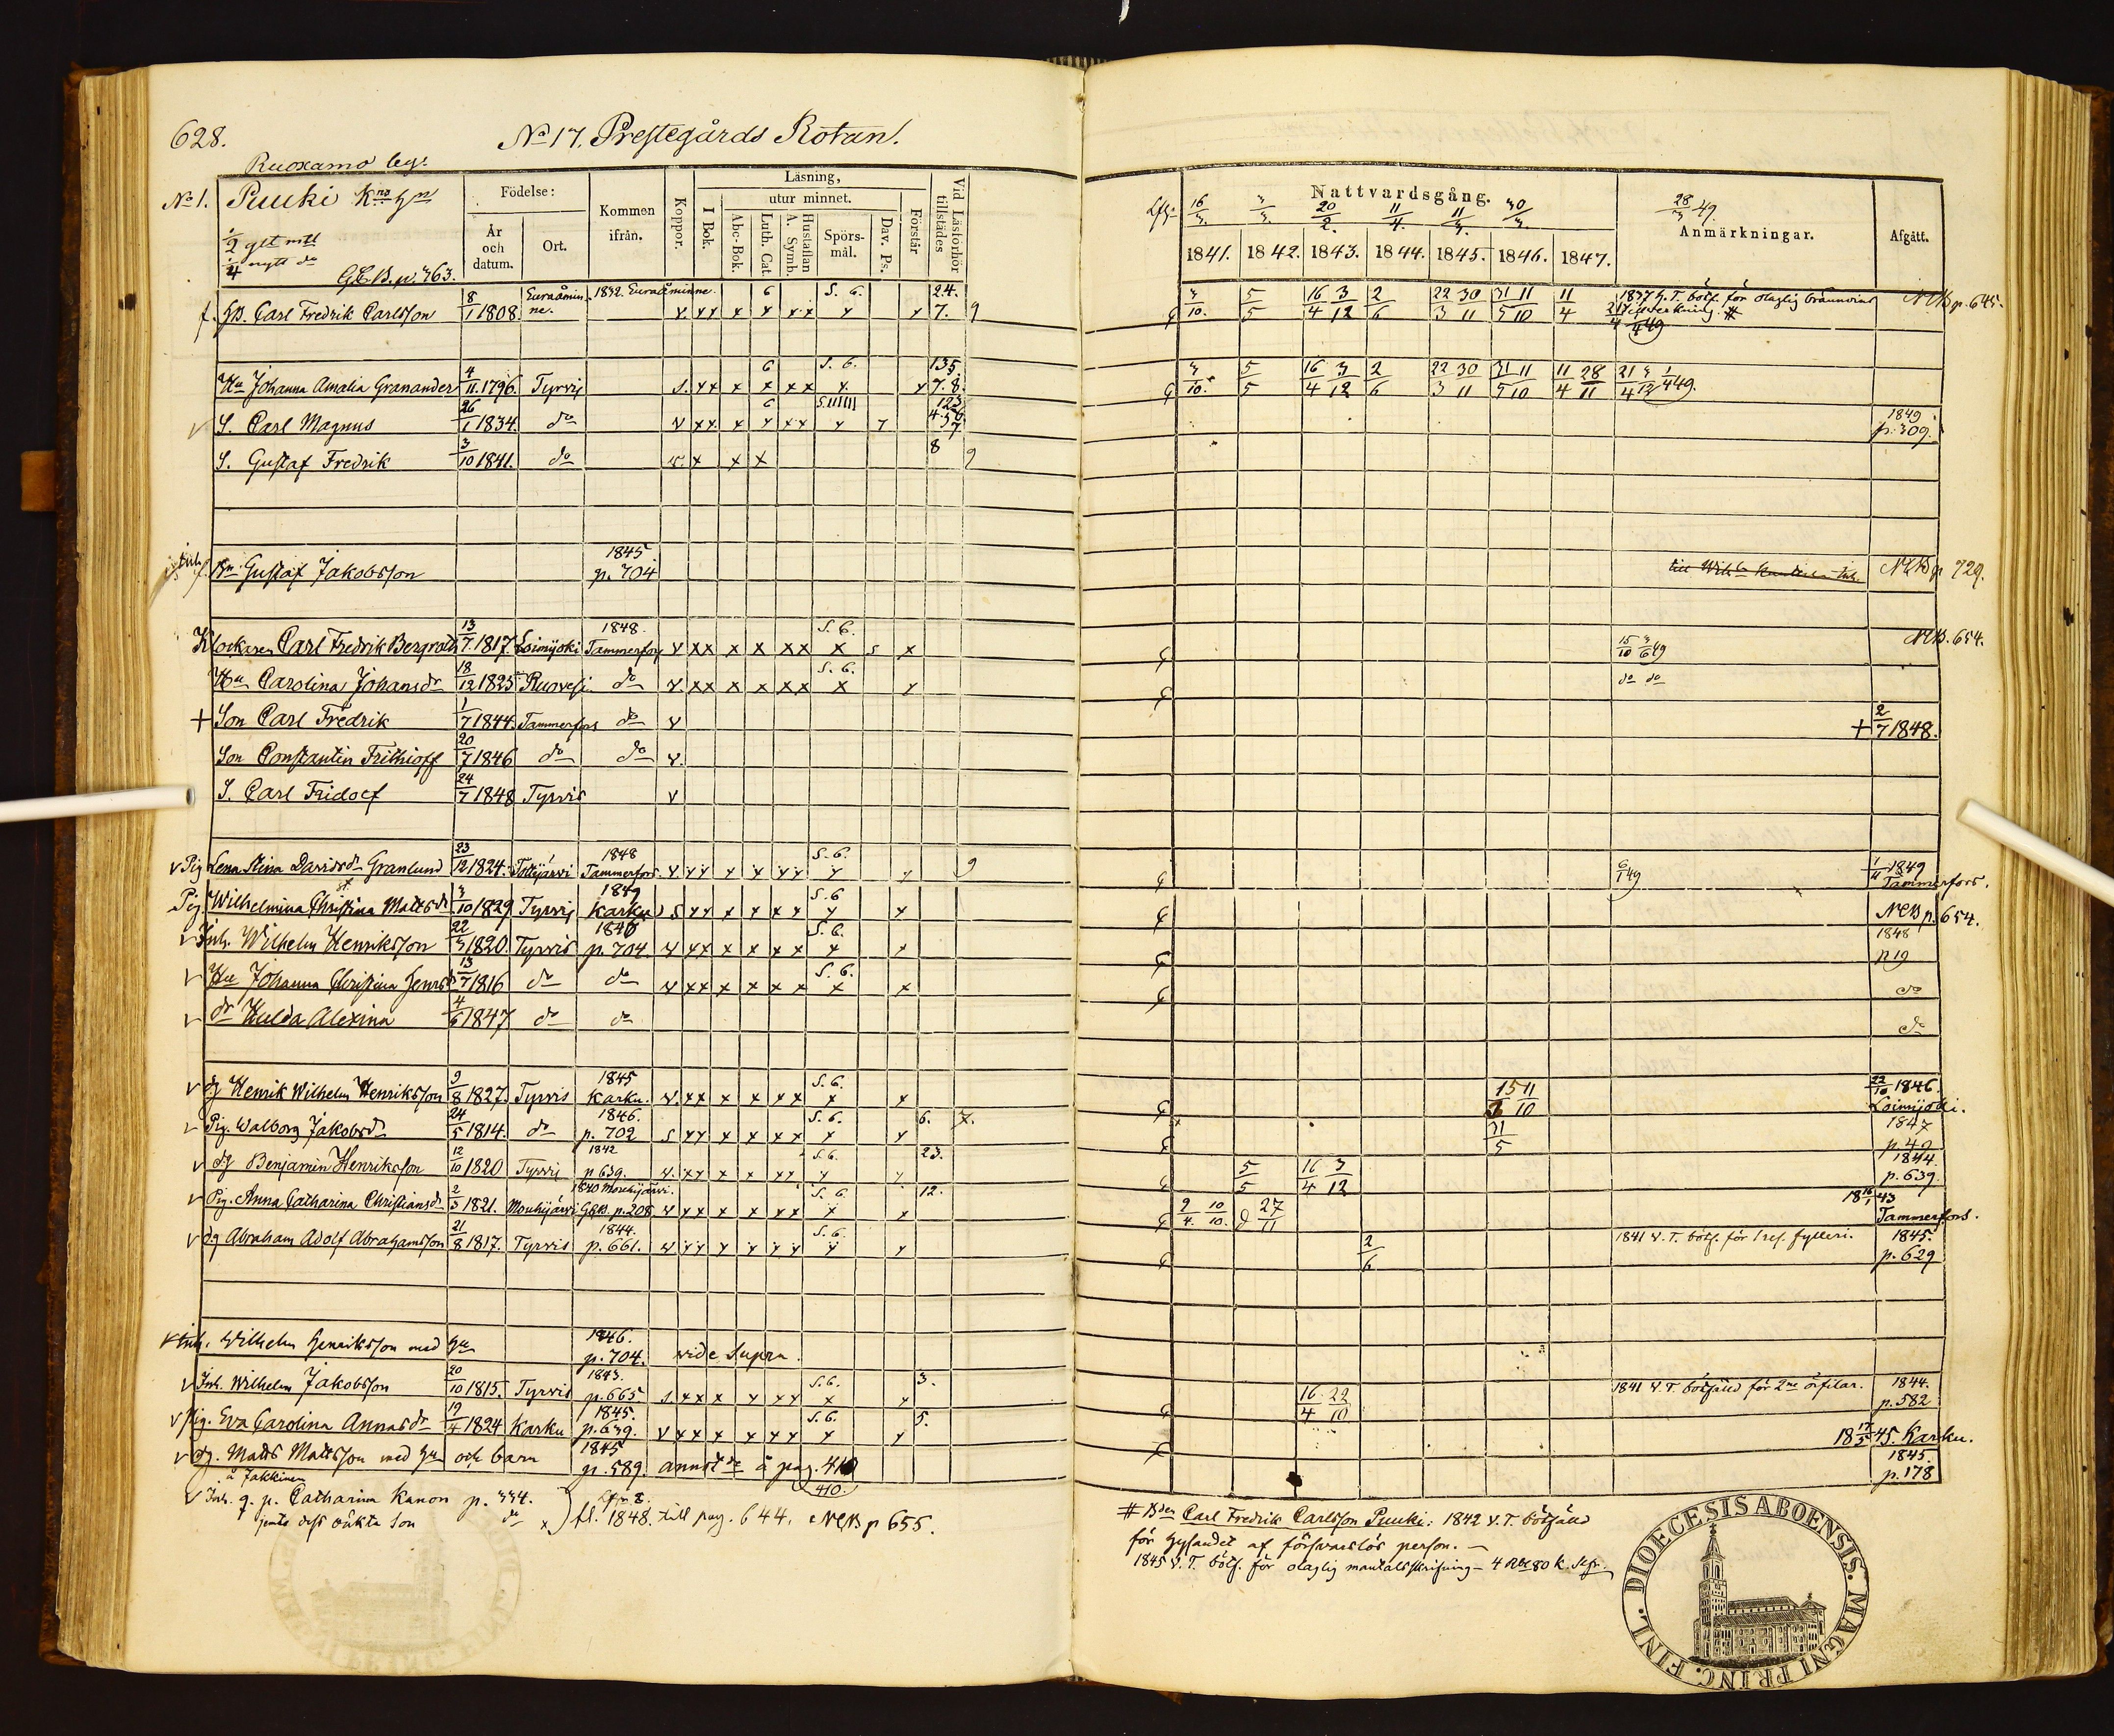 628.
No 17. Prestegårds Rotan.
Ruoxamo by:
No 1. Puuki
½ glt mtl
¼ nytt do
G.C.B. p. 363.
Födelse:
År och datum.
Ort.
Kommen ifrån.
Koppor.
Läsning,
I Bok.
utur minnet.
Abc-Bok.
Luth. Cat.
Hustaflan A. Symb.
Spörsmål.
Dav. Ps.
Förstår
Vid Läsförhör tillstädes
Nattvardsgång.
16/3. 3/3. 20/2. 11/4. 30/3.
1841. 1842. 1843. 1844. 1845. 1846. 1847.
28/3 49.
Anmärkningar.
Afgått.
Carl Fredrik Carlsson 8/1 1808. Euraåminne. 1832. Euraåminne. 6 S. 6. 24. 7. 9
3/10. 5/5 16/4 3/12 2/6 22/3 30/11 31/5 11/10 11/4 1837 h. T. bötf. för olaglig brännvins tillverkning. # NCB p. 645.
Hu Johanna Amalia Granander 4/11. 1796. Tyrvis 6 S. 6. 135. 7. 8.
3/10. 5/5 16/4 3/12 2/6 22/3 30/11 31/5 11/10 11/4 28/11 21/4 3/12 1/4 49.
S. Carl Magnus 26/1 1834. do 6 123 1849 p. 309.
S. Gustaf Fredrik 3/10 1841. do 8 9
Gustaf Jakobsson 1845 p. 704 NCB p 729.
Klockaren Carl Fredrik Bergroth 13/7 1817. Loimijoki 1848. Tammerfors S. 6. 15/10 3/6 49 NCB. 654.
Hu Carolina Johansdr 18/12 1825 Ruovesi do S. 6. do do
+ Son Carl Fredrik 1/7 1844. Tammerfors do + 2/7 1848.
Son Constantin Frithioff 20/7 1846 do do
S. Carl Fridolf 24/7 1848 Tyrvis
Pig Lena Stina Davidsdr Granlund 23/12 1824. 1848 Tammerfors. S. 6. 9 6/1 49 1/11 1849 Tammerfors.
Pig. Wilhelmina Christina Mattsdr 3/10 1829 Tyrvis 1849 Karku S. 6 NCB p. 654.
Inh. Wilhelm Henriksson 22/3 1820. Tyrvis 1846 p. 704. S. 6. 1848 p 19
Hu Johanna Christina Henrsdr 13/7 1816 do do S. 6. do
dr Hulda Alexina 4/6 1847 do do do
dg Henrik Wilhelm Henriksson 9/8 1827. Tyrvis 1845 Karku. S. 6. 15/3 11/10 22/10 1846. Loimijoki.
Pig. Walborg Jakobsdr 24/5 1814. do 1846. p. 702 S. 6. 6. 7. 31/5 1847 p. 42
dg Benjamin Henriksson 12/10 1820 Tyrvis 1842 p. 639. S. 6. 23. 5/5 16/4 3/12 1844. p. 639.
Pig. Anna Catharina Christiansdr 2/3 1821. Mouhijärvi 1840 Mouhijärvi. GCB. p. 208 S. 6. 12. 2/4. 10/10. 27/11 18 16/1 43 Tammerfors.
dg Abraham Adolf Abrahamsson 21/8 1817. Tyrvis 1844. p. 661. S. 6. 2/6 1841 V. T. bötf. för 1 res. fylleri. 1845. p. 629
Inh. Wilhelm Henriksson med hu 1846. p. 704. vide supra.
Inh. Wilhelm Jakobsson 20/10 1815. Tyrvis 1843. p. 665 S. 6. 3. 16/4 22/10 1841 V. T. botfälld för 2ne örfilar. 1844. p. 582
Pig. Eva Carolina Annasdr 19/4 1824 Karku 1845. p. 639. S. 6. 5. 18 17/5 45. Karku.
dg. Matts Mattsson med hu och barn 1845 p. 589. å pag. 410 410. 1845. p. 178
å Jakkinen
Inh. q. p. Catharina Kanon p. 334.
jemte dess oäkta son do
fl. 1848. till pag. 644. NCB p 655.
# Bden Carl Fredrik Carlsson Puuki: 1842 V. T. botfälld
för hysandet af försvarslös person.
1845 V. T. bötf. för olaglig mantalsskrifning - 4 Rbl 80 k. Silfr.
DIOECESIS ABOENSIS. MAGNI PRINC. FINL.